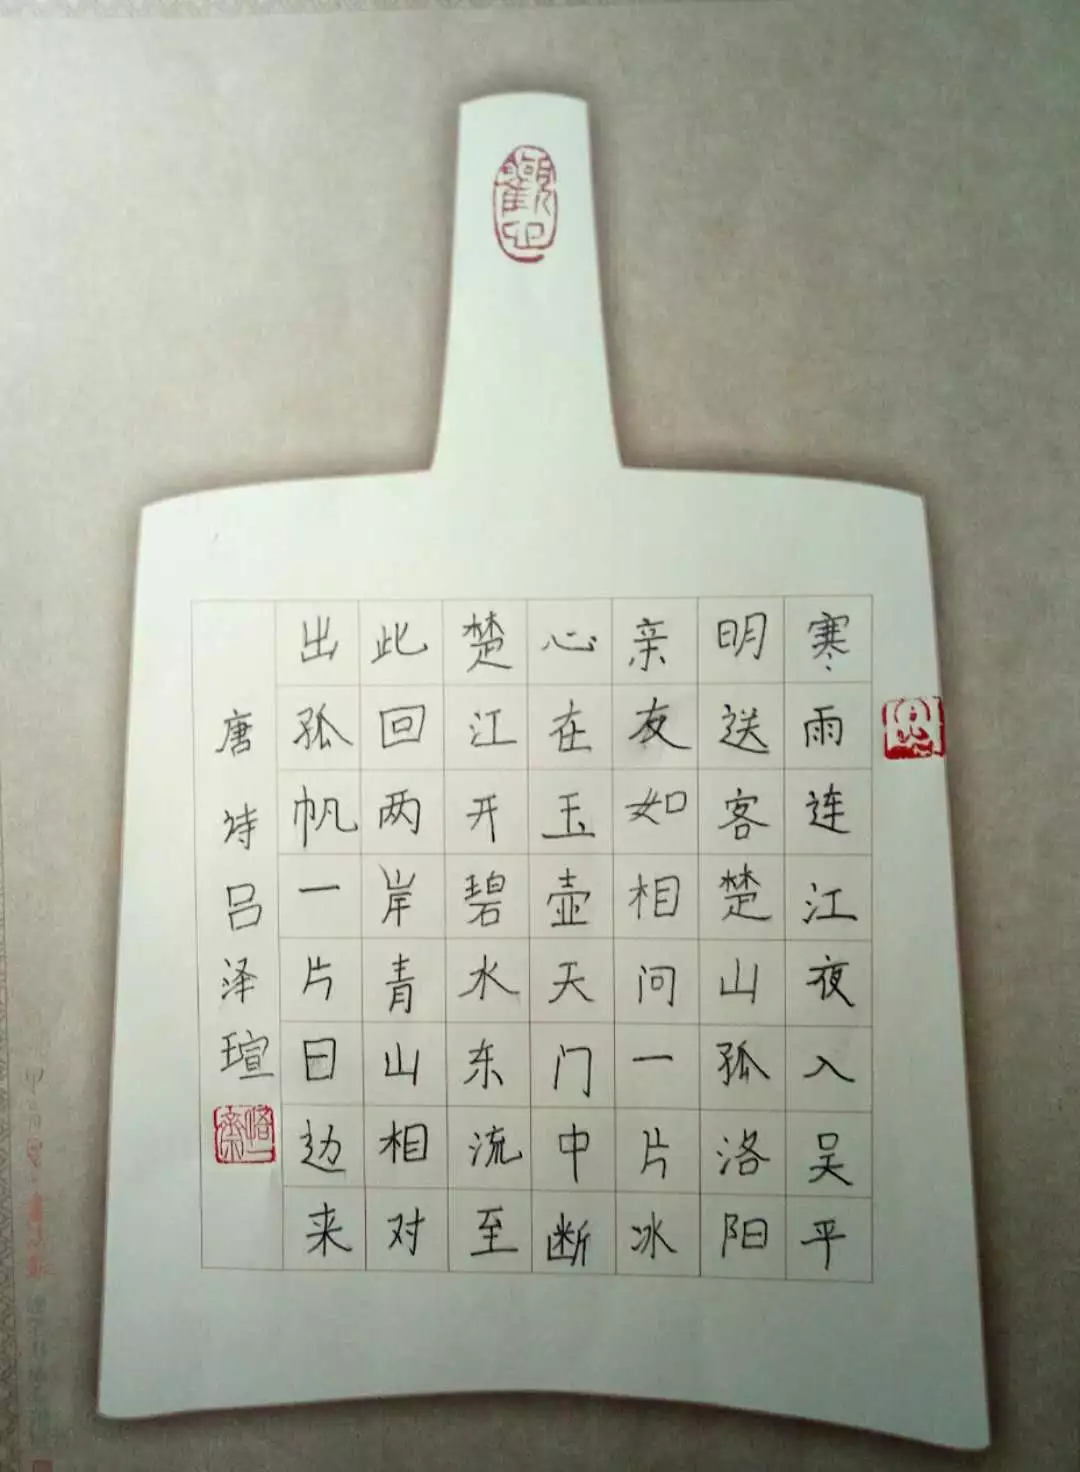 寒雨连江夜入吴平
明送客楚山孤洛阳
亲友如相问一片冰
心在玉壶天门中断
楚江开碧水东流至
此回两岸青山相对
出孤帆一片日边来
唐诗吕泽瑄